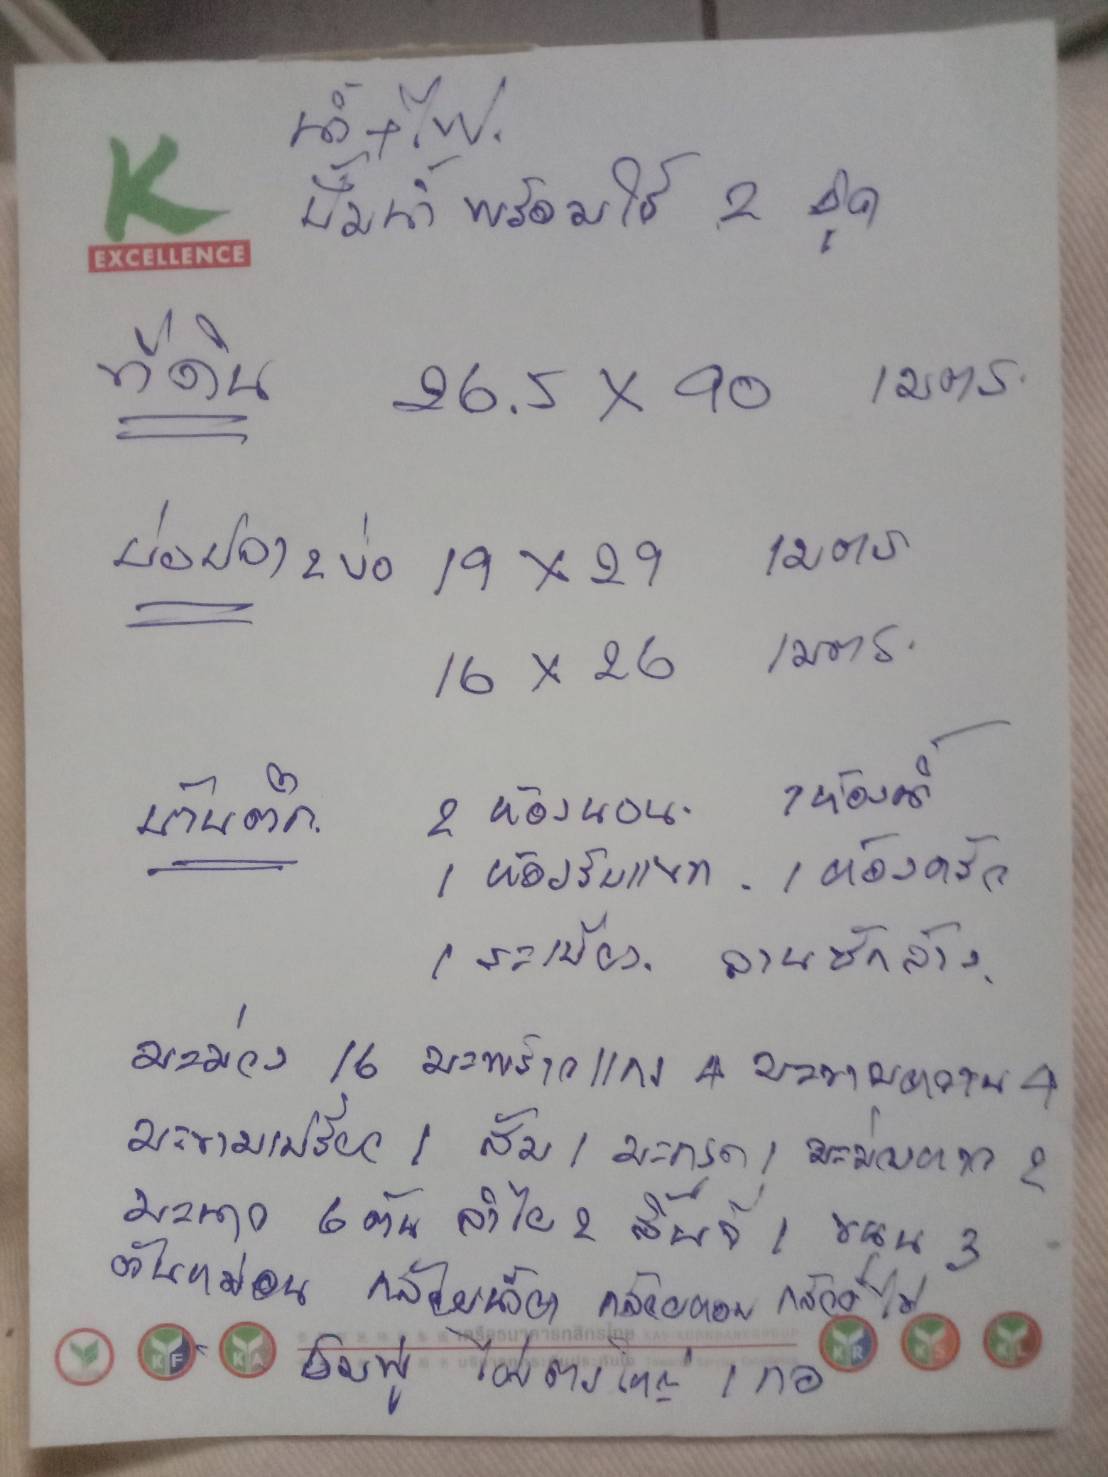 น้ำ+ไฟ.
ปั๊มน้ำ พร้อมใช้ 2 จุด
K
EXCELLENCE
ที่ดิน 26.5 X 90 เมตร.
บ่อปลา 2 บ่อ 19 X 29 เมตร
16 X 26 เมตร.
บ้านตึก. 2 ห้องนอน. 1 ห้องน้ำ
1 ห้องรับแขก. 1 ห้องครัว
1 ระเบียง. ลานซักล้าง.
มะม่วง 16 มะพร้าวแกง 4 มะขามหวาน 4
มะขามเปรี้ยว 1 ส้ม 1 มะกรูด 1 มะม่วงหาว 2
มะนาว 6 ต้น ลำไย 2 ลิ้นจี่ 1 ขนุน 3
ต้นหม่อน กล้วยน้ำว้า กล้วยหอม กล้วยไข่
เครือธนาคารกสิกรไทย KASIKORNBANKGROUP
ชมพู่ ไผ่ตงใหญ่ 1 กอ